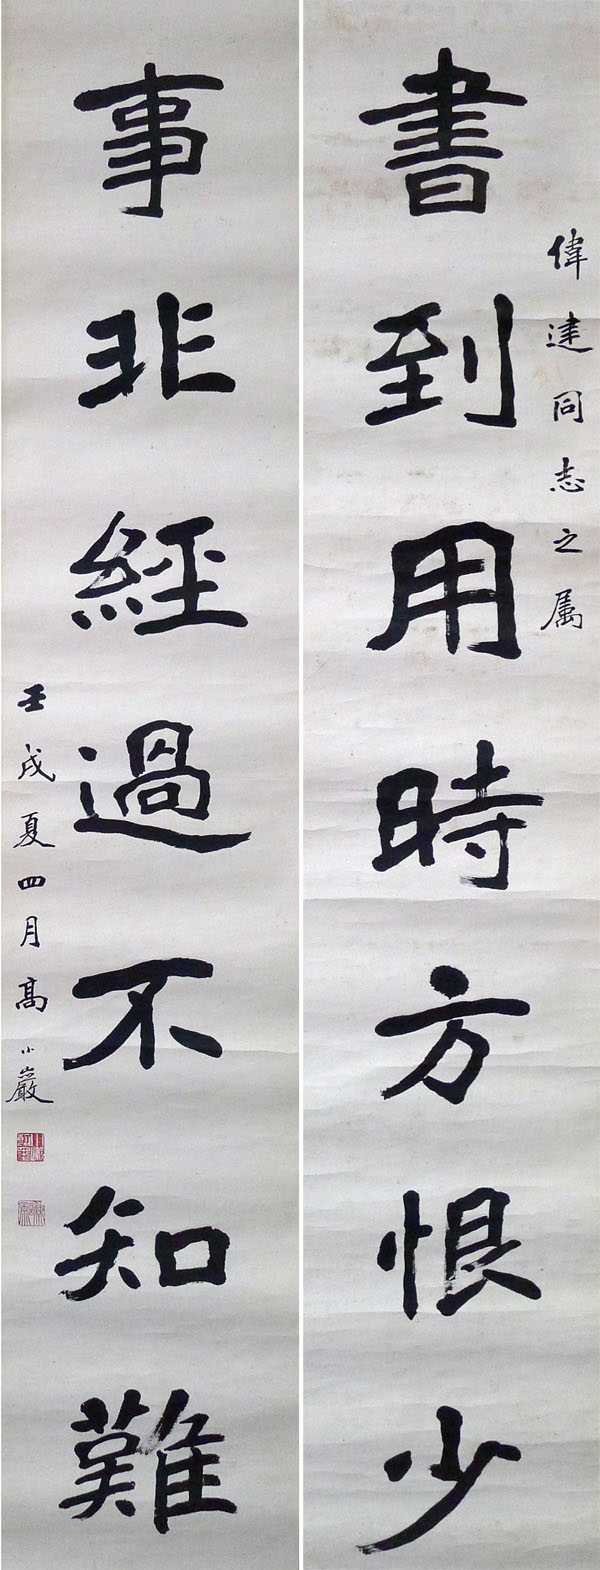 偉達同志之属
書到用時方恨少
事非經過不知難
壬戌夏四月高小巖